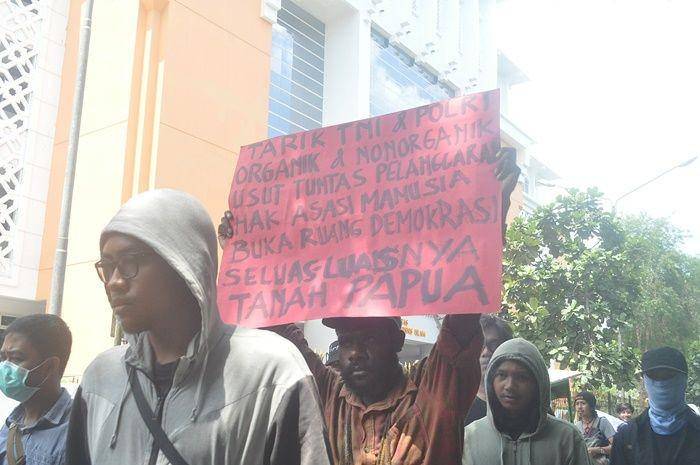 TARIK TNI & POLRI
ORGANIK & NONORGANIK
USUT TUNTAS PELANGGARAN
HAK ASASI MANUSIA
BUKA RUANG DEMOKRASI
SELUAS-LUASNYA
TANAH PAPUA